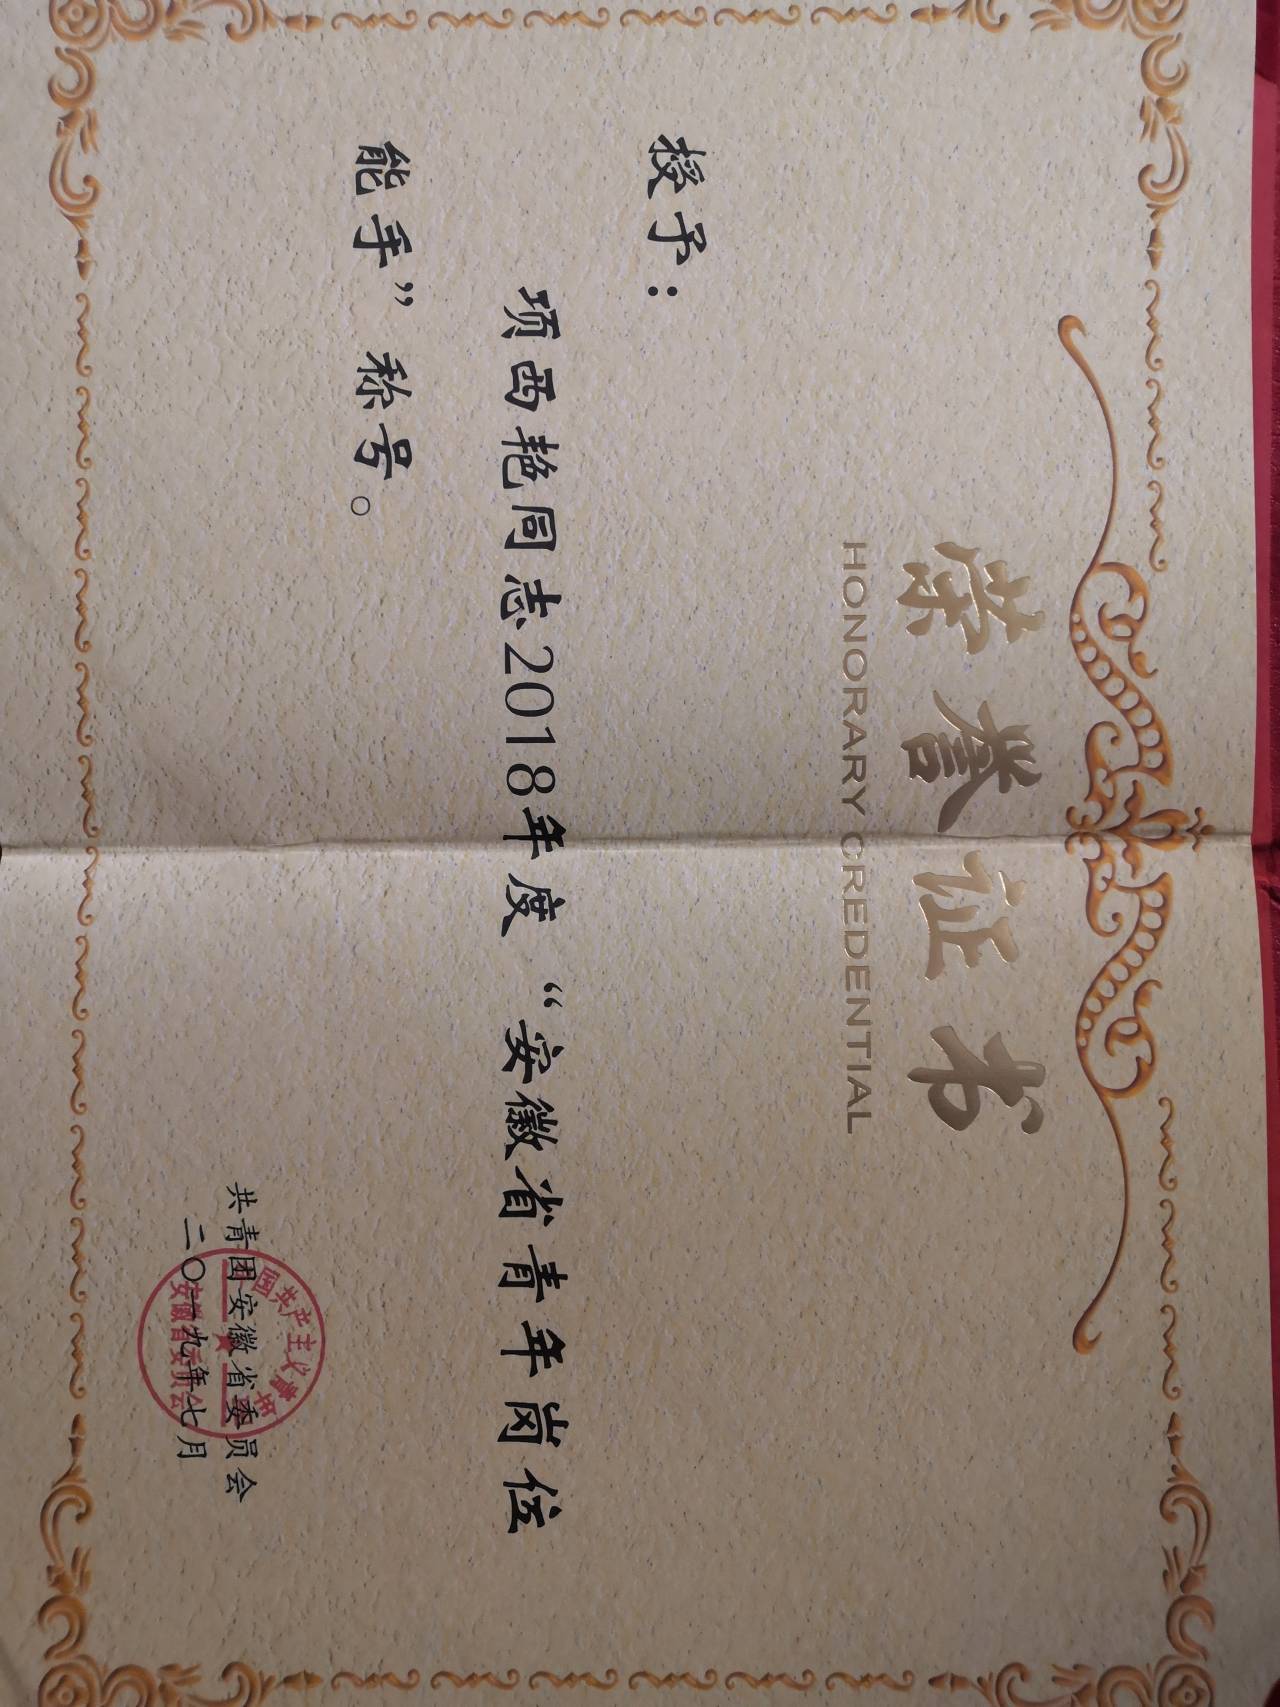 荣誉证书
HONORARY CREDENTIAL
授予：
项西艳同志2018年度“安徽省青年岗位
能手”称号。
共青团安徽省委员会
二〇一九年七月